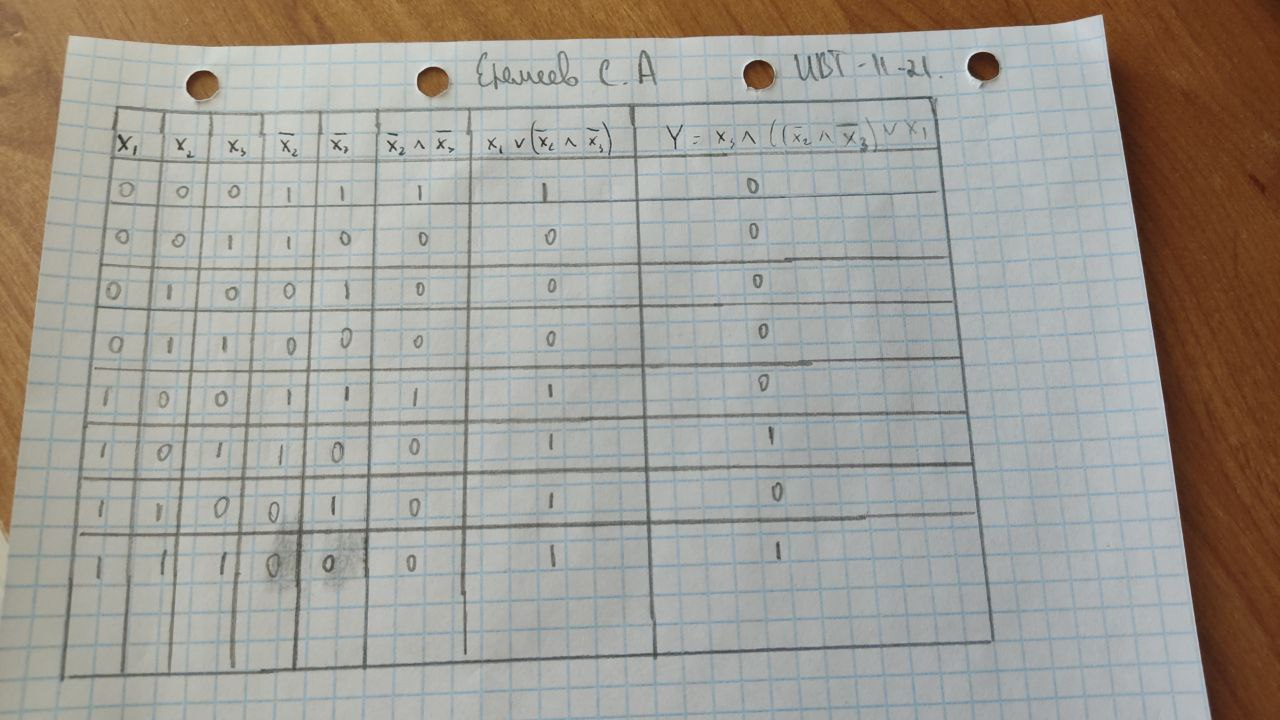 Еремеев С. А ИВТ-11-21.
X₁ X₂ X₃ x̄₂ x̄₃ x̄₂ ∧ x̄₃ x₁ ∨ (x̄₂ ∧ x̄₃) Y = x₃ ∧ ((x̄₂ ∧ x̄₃) ∨ x₁
0 0 0 1 1 1 1 0
0 0 1 1 0 0 0 0
0 1 0 0 1 0 0 0
0 1 1 0 0 0 0 0
1 0 0 1 1 1 1 0
1 0 1 1 0 0 1 1
1 1 0 0 1 0 1 0
1 1 1 0 0 0 1 1